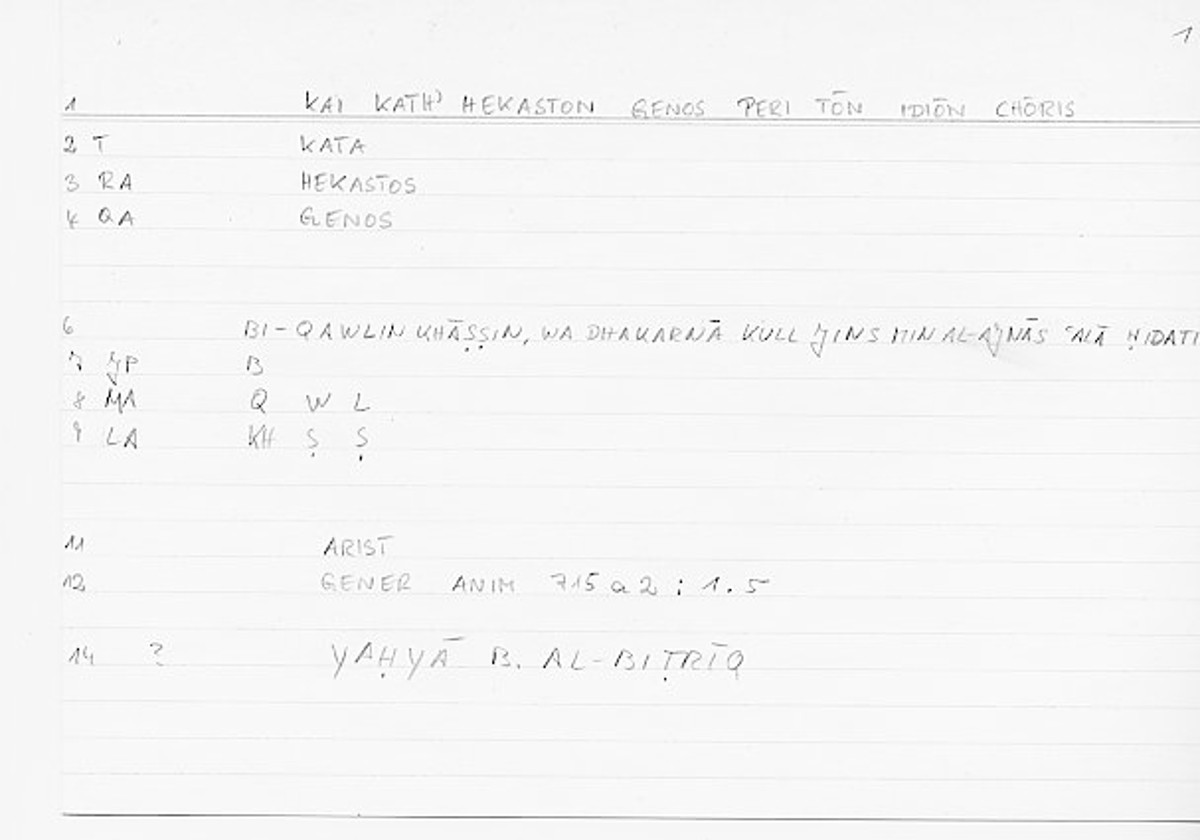 1
1 KAI KATH' HEKASTON GENOS PERI TŌN IDIŌN CHŌRIS
2 T KATA
3 RA HEKASTOS
4 QA GENOS
6 BI-QAWLIN KHĀṢṢIN, WA DHAKARNĀ KULL JINS MIN AL-AJNĀS ʿALĀ ḤIDATI
7 JP B
8 MA Q W L
9 LA KH Ṣ Ṣ
11 ARIST
12 GENER ANIM 715 a 2 ; 1.5
14 ? YAḤYĀ B. AL-BIṬRĪQ